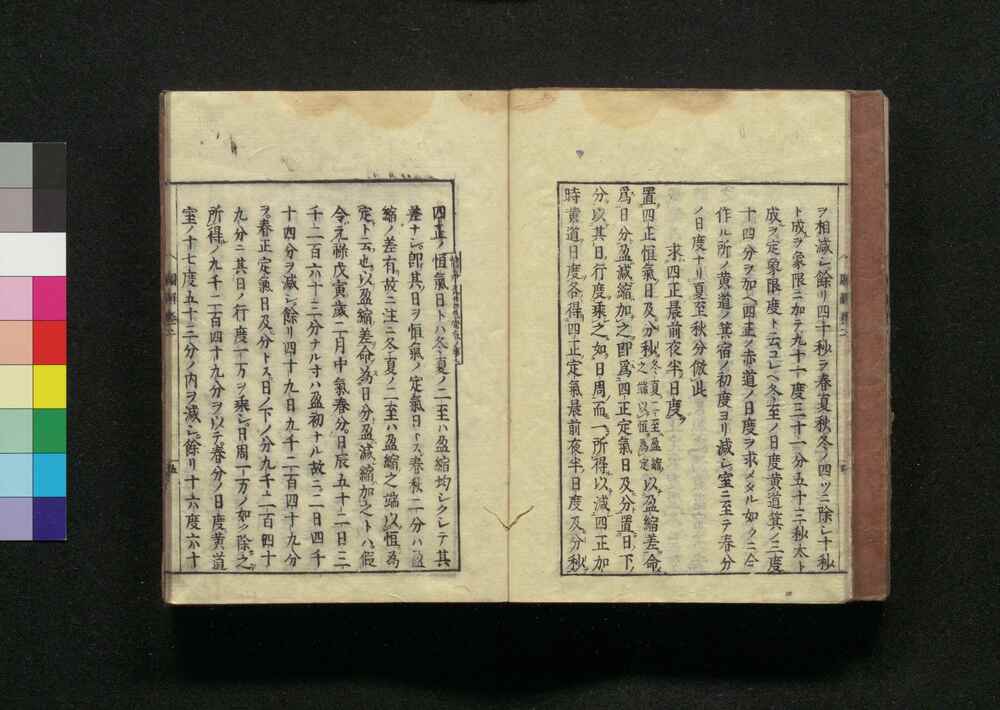 ヲ相減シ餘リ四十秒ヲ春夏秋冬ノ四ツニ除シ十秒
ト成ヲ象限ニ加テ九十一度三十一分五十三秒太ト
成ヲ定象限度ト云コレヘ冬至ノ日度黄道箕ノ三度
十四分ヲ加ヘ四正ノ赤道ノ日度ヲ求メタル如クニ合
作ル所ノ黄道ノ箕宿ノ初度ヨリ減シ室ニ至テ春分
ノ日度ナリ夏至秋分倣此
求四正晨前夜半日度
置四正恒氣日及分秒冬夏二至盈縮之端以恒為定以盈縮差命
爲日分盈減縮加之即爲四正定氣日及分置日下
分以其日行度乗之如日周而一所得以減四正加
時黄道日度各得四正定氣晨前夜半日度及分秒
四正ノ恒氣日トハ冬夏ノ二至ハ盈縮均シクシテ其
差ナシ即其日ヲ恒氣ノ定氣日トス春秋二分ハ盈
縮ノ差有故ニ注ニ冬夏ノ二至ハ盈縮之端以恒為
定ト云也以盈縮差命為日分盈減縮加之トハ假
令元禄戊寅歳二月中氣春分日辰五十二日三
千二百六十三分ナルすハ盈初ナル故ニ二日四千
十四分ヲ減シ餘リ四十九日九千二百四十九分
ヲ春正定氣日及分トス日ノ下ノ分九千二百四十
九分ニ其日ノ行度一万ヲ乗シ日周一万ノ如ク除之
所得ノ九千二百四十九分ヲ以テ春分ノ日度黄道
室ノ十七度五十三分ノ内ヲ減シ餘リ十六度六十